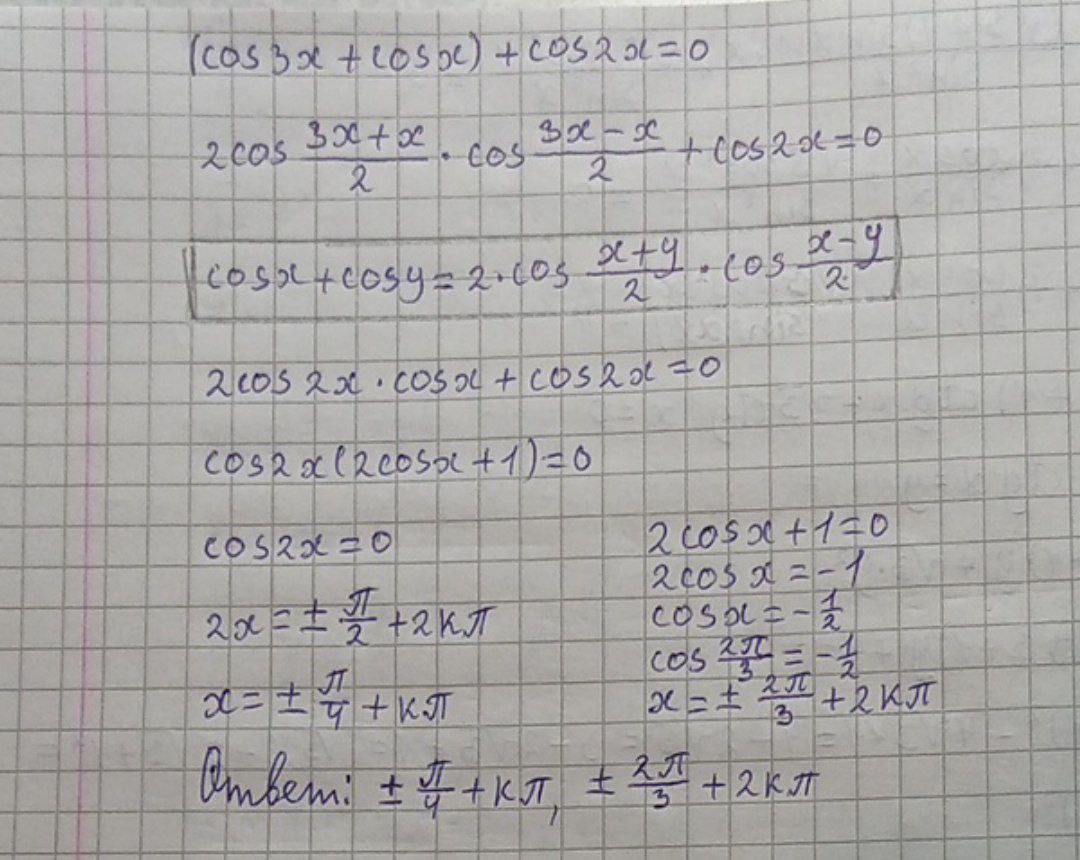 (cos3x + cosx) + cos2x = 0
2cos (3x + x)/2 · cos (3x − x)/2 + cos2x = 0
cosx + cosy = 2 · cos (x + y)/2 · cos (x − y)/2
2cos2x · cosx + cos2x = 0
cos2x(2cosx + 1) = 0
cos2x = 0
2x = ± π/2 + 2кπ
x = ± π/4 + кπ
2cosx + 1 = 0
2cosx = −1
cosx = −1/2
cos 2π/3 = −1/2
x = ± 2π/3 + 2кπ
Ответ: ± π/4 + кπ, ± 2π/3 + 2кπ